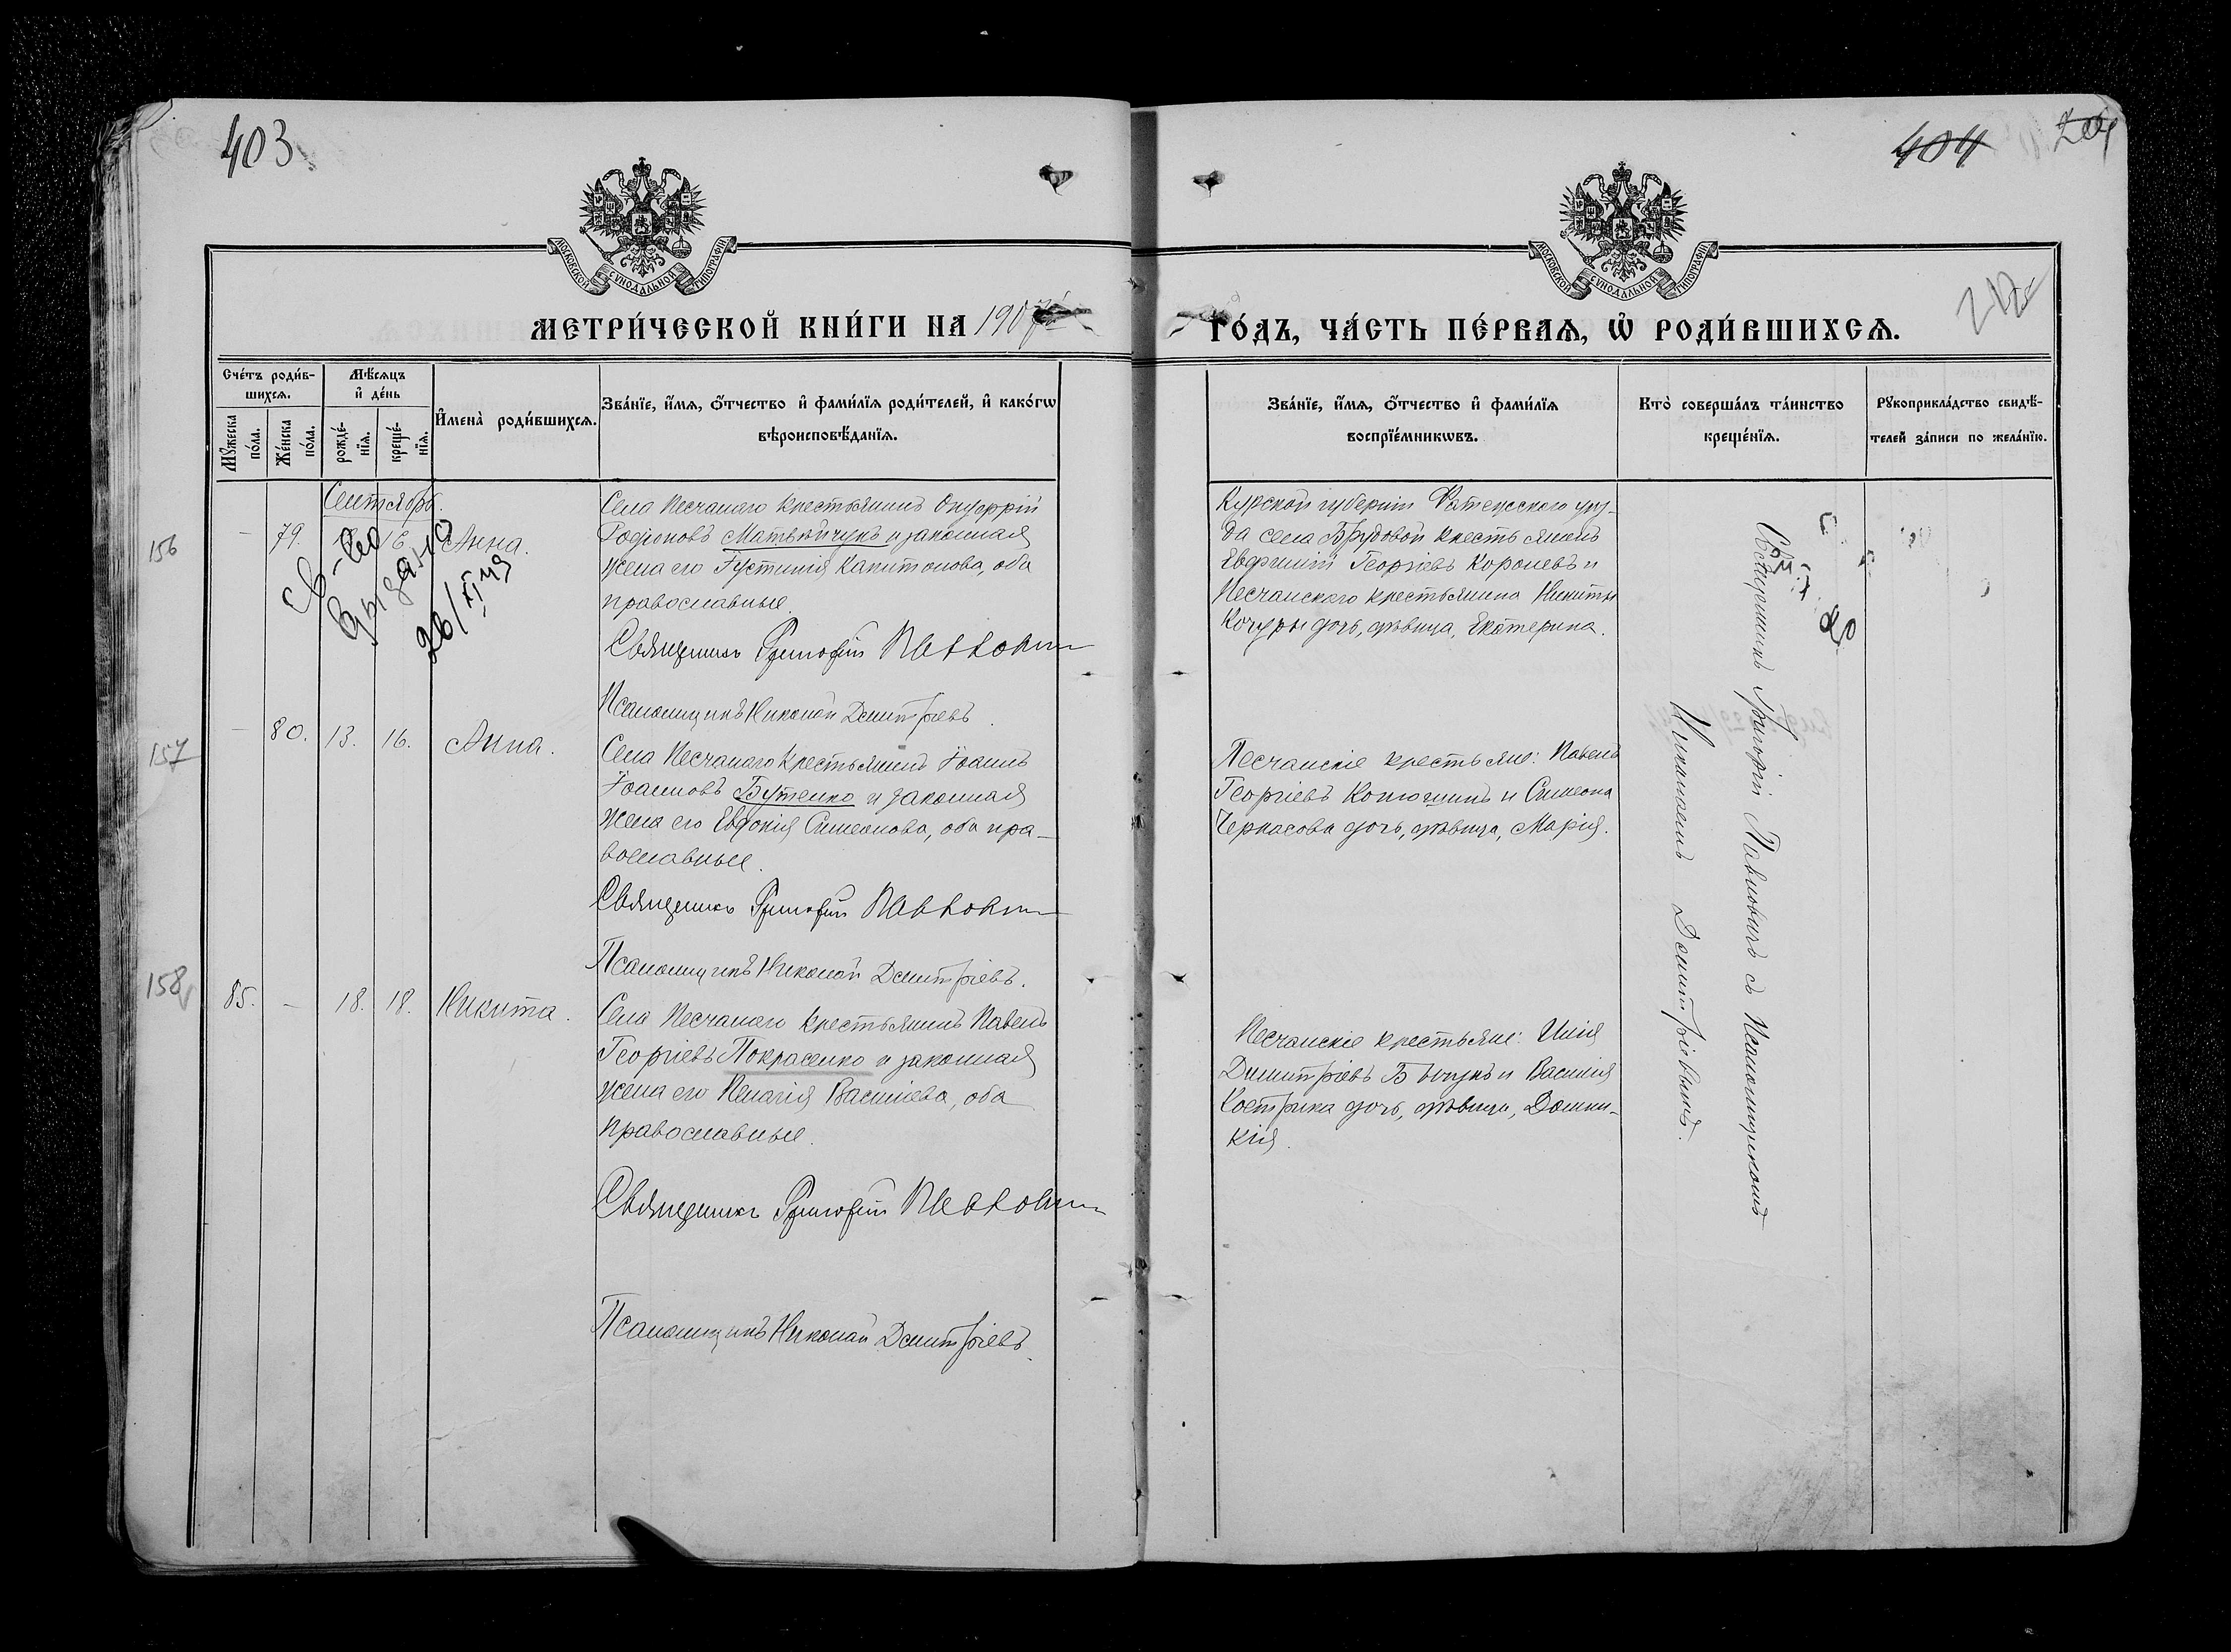 403
404
МОСКОВСКОЙ СѴНОДАЛЬНОЙ ТИПОГРАФІИ
МОСКОВСКОЙ СѴНОДАЛЬНОЙ ТИПОГРАФІИ
МЕТРИ́ЧЕСКОЙ КНИ́ГИ НА 1907
ГО́ДЪ, ЧА́СТЬ ПЕ́РВАѦ, Ѡ҆ РОДИ́ВШИХСѦ.
Сче́тъ роди́в-
шихсѧ.
Мꙋжеска по́ла.
Же́нска по́ла.
Мѣ́сѧцъ
и҆ де́нь
рожде́-
нїѧ.
креще́-
нїѧ.
И҆мена̀ роди́вшихсѧ.
Зва́нїе, и҆́мѧ, ѻ҆́тчество и҆ фами́лїѧ роди́телей, и҆ како́гѡ
вѣроисповѣ́данїѧ.
Зва́нїе, и҆́мѧ, ѻ҆́тчество и҆ фами́лїѧ
воспрїе́мникѡвъ.
Кто̀ соверша́лъ та́инство
креще́нїѧ.
Рꙋкоприкла́дство свидѣ́-
телей за́писи по жела́нїю.
Сентябрь.
156
— 79. 16 Анна.
св-во
выдано
Села Песчанаго крестьянинъ Онуфрій
Родіоновъ Матвѣйчукъ и законная
жена его Іустинія Капитонова, оба
православные.
Священникъ Григорій Павлович
Псаломщикъ Николай Димитріевъ.
Курской губерніи Фатежского уѣз-
да села крестьянинъ
Евфимій Георгіевъ Королевъ и
Песчанского крестьянина Никиты
Кочуры дочь, дѣвица, Екатерина.
157
— 80. 13. 16. Анна.
Села Песчанаго крестьянинъ Іоаннъ
Іоанновъ Бутенко и законная
жена его Евдокія Симеонова, оба пра-
вославные.
Священникъ Григорій Павлович
Псаломщикъ Николай Димитріевъ.
Песчанскіе крестьяне: Павелъ
Георгіевъ и Симеона
Черкасова дочь, дѣвица, Марія.
158
85. — 18. 18. Никита.
Села Песчанаго крестьянинъ Павелъ
Георгіевъ Покрасенко и законная
жена его Пелагія Васильева, оба
православные.
Священникъ Григорій Павлович
Псаломщикъ Николай Димитріевъ.
Песчанскіе крестьяне: Илія
Димитріевъ и Василія
Кострика дочь, дѣвица, Домни-
кія.
Священникъ Григорій Павловичъ съ Псаломщикомъ
Николаемъ Димитріевымъ.